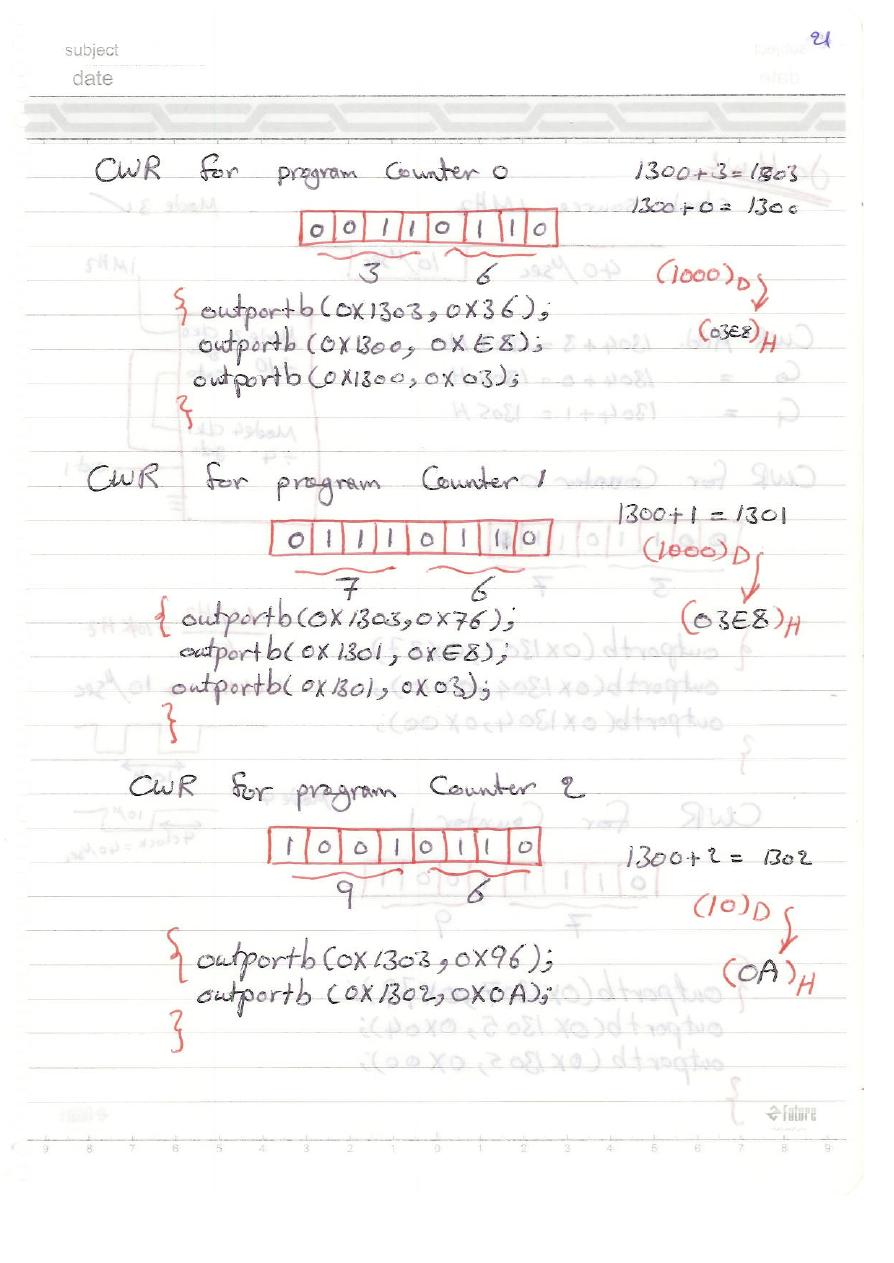 21
subject
date
CWR for program Counter 0
1300+3=1303
1300+0=1300
0 0 1 1 0 1 1 0
3 6
(1000)D
(03E8)H
{ outportb(0X1303,0X36);
outportb(0X1300, 0XE8);
outportb(0X1300,0X03);
}
CWR for program Counter 1
1300+1=1301
0 1 1 1 0 1 1 0
(1000)D
7 6
(03E8)H
{ outportb(0X1303,0X76);
outportb(0X1301,0XE8);
outportb(0X1301,0X03);
}
CWR for program Counter 2
1 0 0 1 0 1 1 0
1300+2= 1302
9 6
(10)D
{ outportb(0X1303,0X96);
(0A)H
outportb (0X1302,0X0A);
}
Future
9 8 7 6 5 4 3 2 1 0 1 2 3 4 5 6 7 8 9